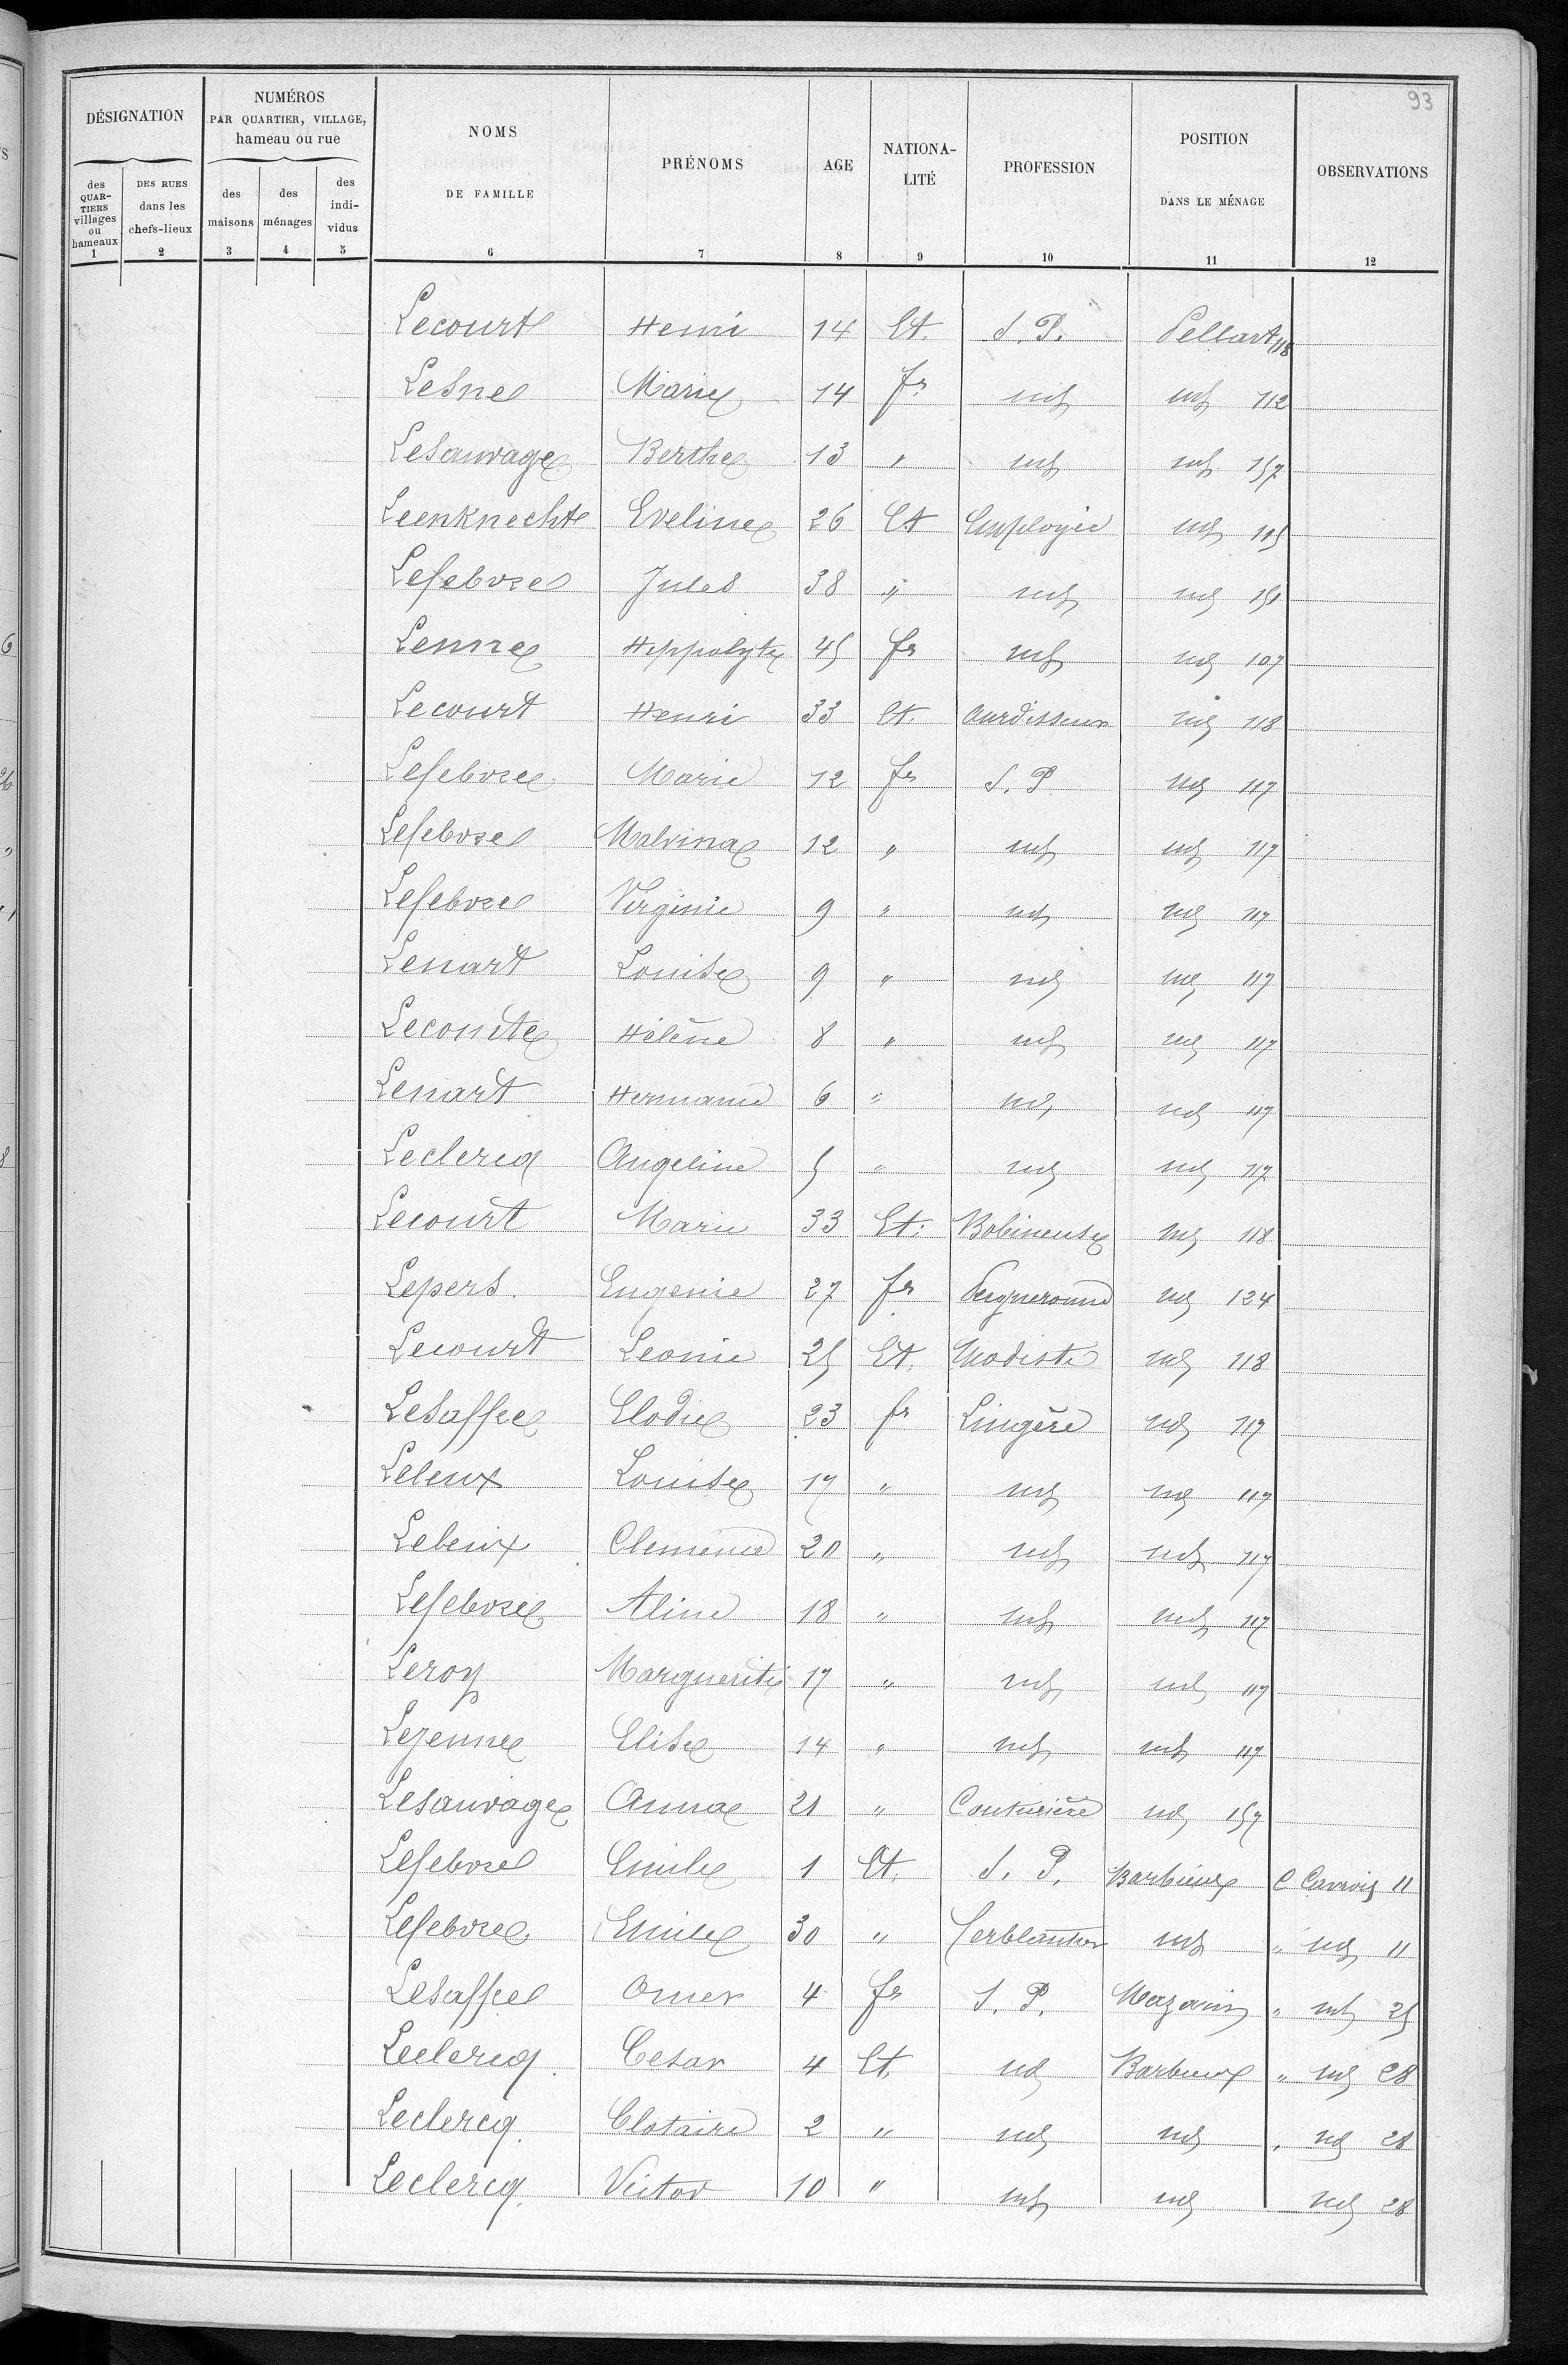 93
DÉSIGNATION
NUMÉROS PAR QUARTIER, VILLAGE, hameau ou rue
NOMS DE FAMILLE
PRÉNOMS
AGE
NATIONA-LITÉ
PROFESSION
POSITION DANS LE MÉNAGE
OBSERVATIONS
des QUAR-TIERS villages ou hameaux
DES RUES dans les chefs-lieux
des maisons
des ménages
des indi-vidus
1 2 3 4 5 6 7 8 9 10 11 12
Lecourt Henri 14 Et. S. P. Pellart 118
Lesne Marie 14 fr id id 112
Lesauvage Berthe 13 " id id 157
Leenknecht Eveline 26 Et Employée id 115
Lefebvre Jules 38 " id id
Lenne Hippolyte 45 fr id id 107
Lecourt Henri 33 Et. Ourdisseur id 118
Lefebvre Marie 12 fr S. P. id 117
Lefebvre Malvina 12 " id id 117
Lefebvre Virginie 9 " id id 117
Lenart Louise 9 " id id 117
Lecomte Hélène 8 " id id 117
Lenart Hermanie 6 " id id 117
Leclercq Angeline 5 " id id 117
Lecourt Marie 33 Et. Bobineuse id 118
Lepers. Eugenie 27 fr id 124
Lecourt Leonie 25 Et. Modiste id 118
Lesaffre Elodie 23 fr Lingère id 117
Leleux Louise 17 " id id 117
Leleux Clemence 20 " id id 117
Lefebvre Aline 18 " id id 117
Leroy Marguerite 17 " id id 117
Lejeune Elise 14 " id id 117
Lesauvage Anna 21 " Couturière id 157
Lefebvre Emile 1 Et. S. P. Barbieux C Carrois 11
Lefebvre Emile 30 " Ferblantier id " id 11
Lesaffre Omer 4 fr S. P. Mazarin " id 25
Leclercq Cesar 4 Et. id Barbieux " id 28
Leclercq Clotaire 2 " id id " id 28
Leclercq Victor 10 " id id id 28